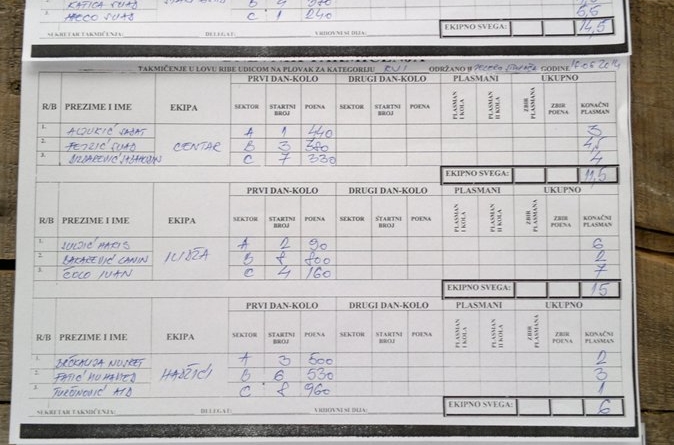 KATICA SUAD B 4
3. MECO SUAD C 1 240 5,5
SEKRETAR TAKMIČENJA: DELEGAT: VRHOVNI SUDIJA: EKIPNO SVEGA: 14,5
TAKMIČENJE U LOVU RIBE UDICOM NA PLOVAK ZA KATEGORIJU ODRŽANO U GODINE
PRVI DAN-KOLO DRUGI DAN-KOLO PLASMANI UKUPNO
R/B PREZIME I IME EKIPA SEKTOR STARTNI BROJ POENA SEKTOR STARTNI BROJ POENA PLASMAN I KOLA PLASMAN II KOLA ZBIR PLASMANA ZBIR POENA KONAČNI PLASMAN
1. A 1 440 3
2. SUAD CENTAR B 3 380 4,5
3. C 7 330 4
EKIPNO SVEGA: 11,5
PRVI DAN-KOLO DRUGI DAN-KOLO PLASMANI UKUPNO
R/B PREZIME I IME EKIPA SEKTOR STARTNI BROJ POENA SEKTOR STARTNI BROJ POENA PLASMAN I KOLA PLASMAN II KOLA ZBIR PLASMANA ZBIR POENA KONAČNI PLASMAN
1. HARIS A 2 90 6
2. ILIDŽA B 8 800 2
3. ČOLO IVAN C 4 160 7
EKIPNO SVEGA: 15
PRVI DAN-KOLO DRUGI DAN-KOLO PLASMANI UKUPNO
R/B PREZIME I IME EKIPA SEKTOR STARTNI BROJ POENA SEKTOR STARTNI BROJ POENA PLASMAN I KOLA PLASMAN II KOLA ZBIR PLASMANA ZBIR POENA KONAČNI PLASMAN
1. NUSRET A 3 500 2
2. FATIĆ MUHAMED HADŽIĆI B 6 530 3
3. C 8 960 1
SEKRETAR TAKMIČENJA: DELEGAT: VRHOVNI SUDIJA: EKIPNO SVEGA: 6